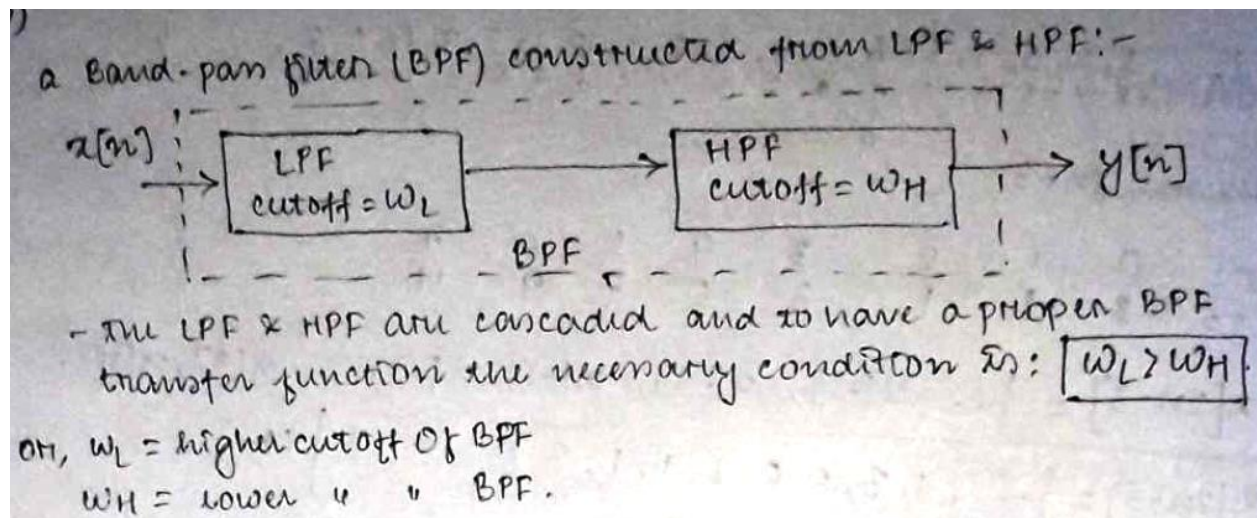 a Band-pass filter (BPF) constructed from LPF & HPF:-
x[n]
LPF
cutoff = ωL
HPF
cutoff = ωH
y[n]
BPF
- The LPF & HPF are cascaded and to have a proper BPF
transfer function the necessary condition is: ωL > ωH
or, ωL = higher cutoff of BPF
ωH = lower " " BPF.